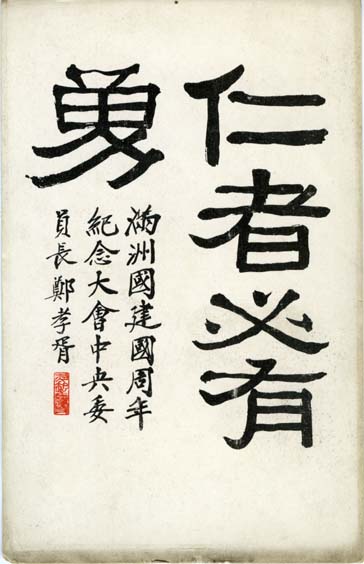 仁者必有
勇
滿洲國建國周年
紀念大會中央委
員長鄭孝胥